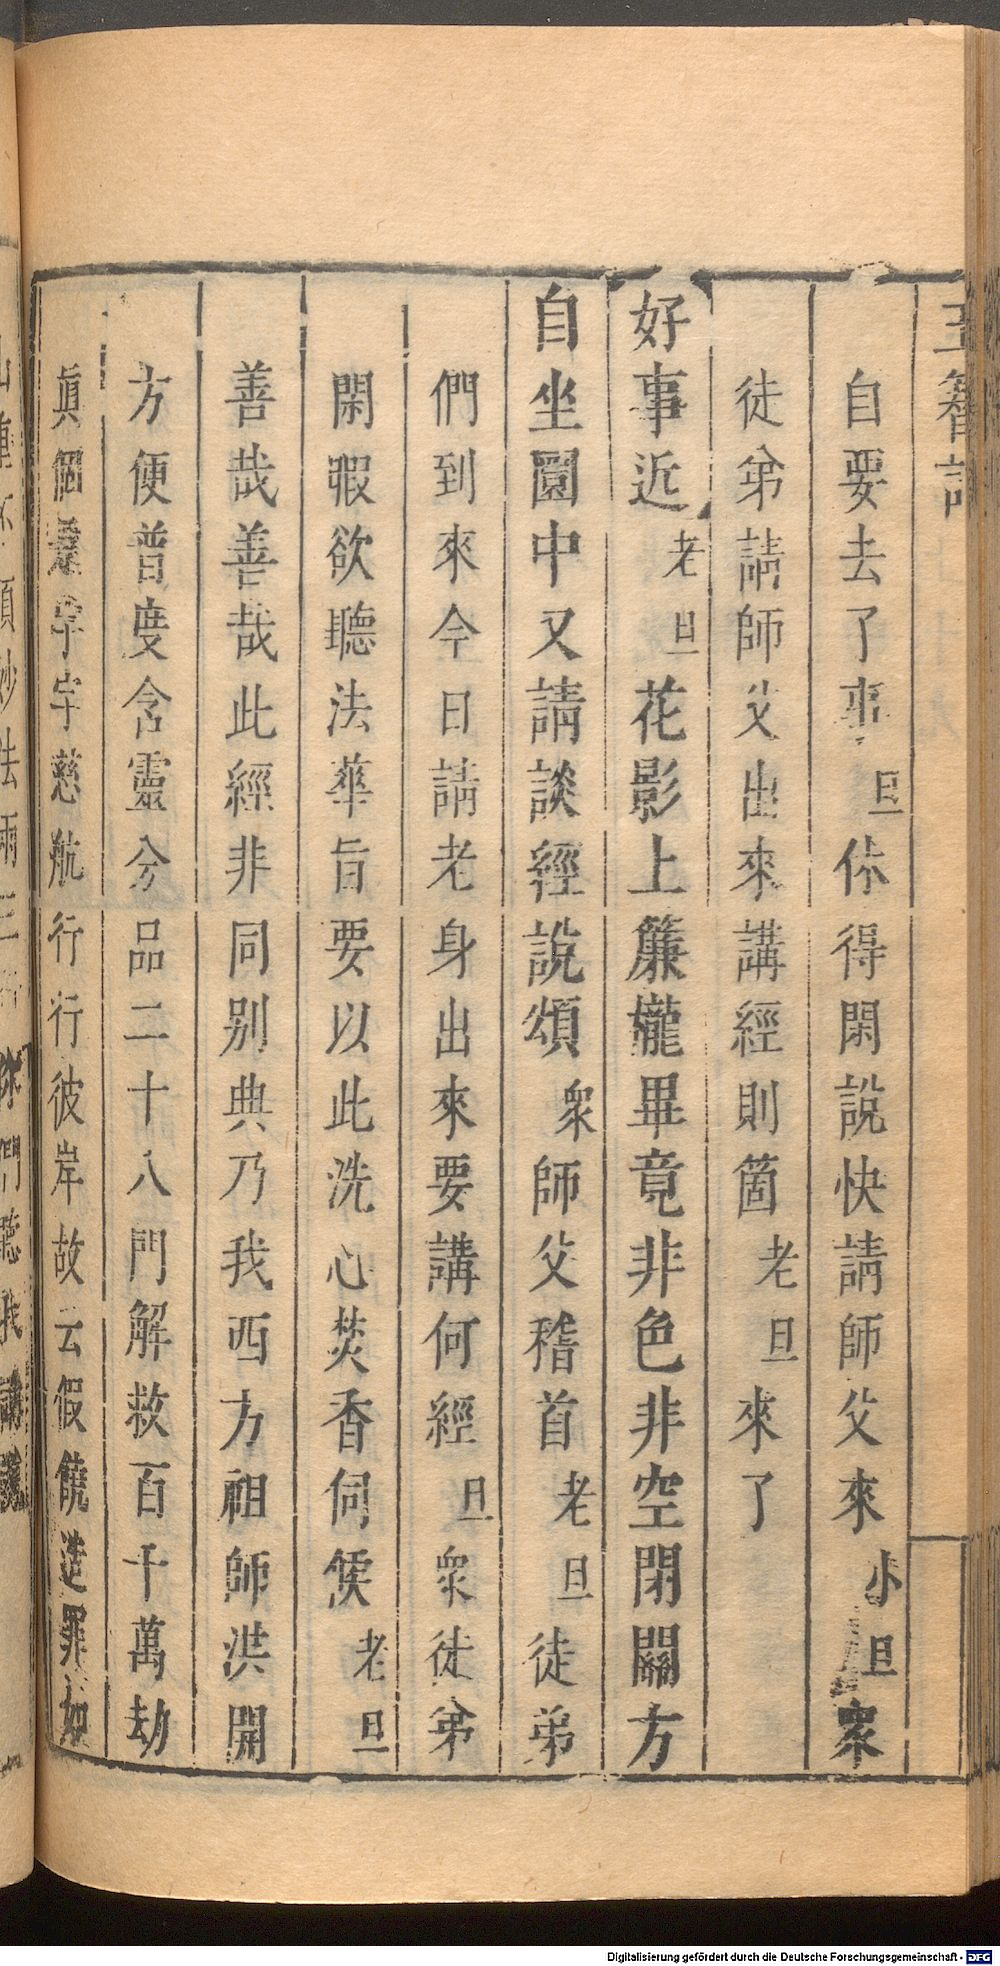 玉簪記
自要去了來旦你得閑說快請師父來小旦衆
徒弟請師父出來講經則箇老旦來了
好事近老旦花影上簾櫳畢竟非色非空閉關方
自坐圜中又請談經說頌衆師父稽首老旦徒弟
們到來今日請老身出來要講何經旦衆徒弟
閑暇欲聽法華旨要以此洗心焚香伺候老旦
善哉善哉此經非同别典乃我西方祖師洪開
方便普度含靈分品二十八門解救百千萬劫
眞個字字慈航行行彼岸故云假饒造罪如
山妙法兩三行你們聽我講
Digitalisierung gefördert durch die Deutsche Forschungsgemeinschaft - DFG